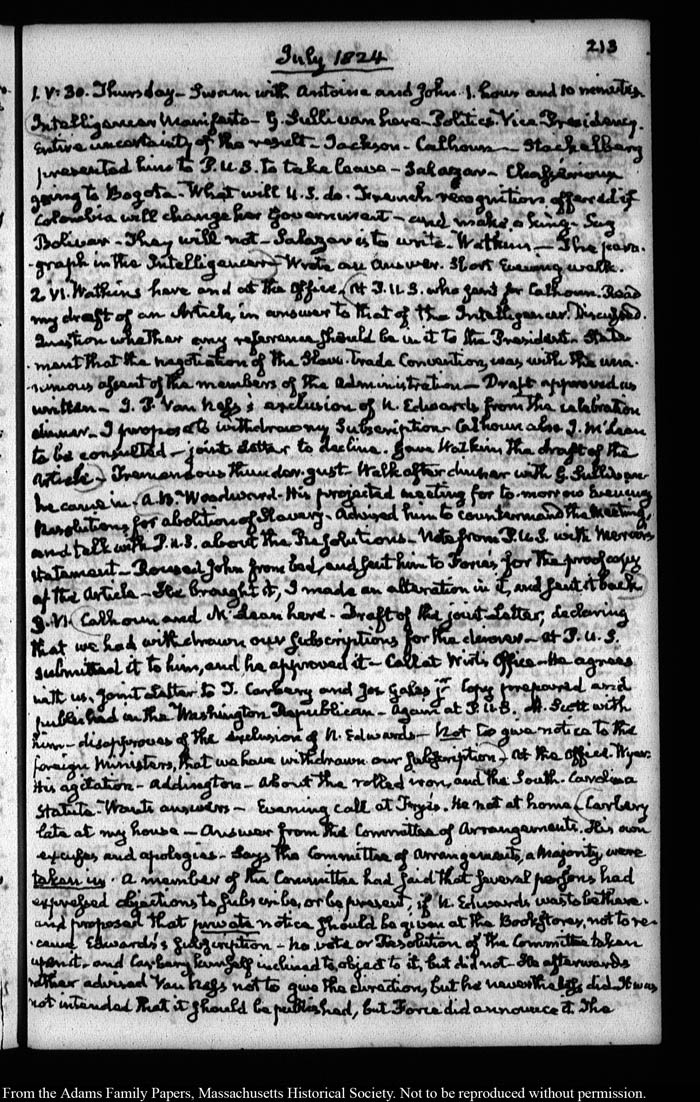 213
July 1824
1. V: 30. Thursday - Swam with Antoine and John. 1. hour and 10 minutes.
Intelligencer Manifesto - G. Sullivan here - Politics. Vice-Presidency.
Entire uncertainty of the result - Jackson - Calhoun - Stackelberg
presented him to P.U.S. to take leave - Salazar -
going to Bogota - What will U.S. do. French recognition offered if
Colombia will change her Government - and make a King.
Bolivar - They will not - Salazar is to write. Watkins - The para-
-graph in the Intelligencer - Wrote an answer. Short Evening walk.
2. VI. Watkins here and at the Office. At P.U.S. who sent for Calhoun. Read
my draft of an Article, in answer to that of the Intelligencer. Discussed.
Question whether any reference should be in it to the President - State-
-ment that the negotiation of the Slave-Trade Convention, was with the una-
-nimous assent of the members of the Administration - Draft approved as
written - J. P. Van Ness's exclusion of N. Edwards from the celebration
dinner - I propose to withdraw my Subscription - Calhoun also J. McLean
to be consulted - joint Letter to decline. Gave Watkins the draft of the
Article - Tremendous thunder-gust - Walk after dinner with G. Sullivan
he came in. A. B. Woodward - His projected meeting for to-morrow Evening
Resolutions for abolition of Slavery - Advised him to countermand the Meeting
and talk with P.U.S. about the Resolutions - Note from P.U.S. with
statement - Roused John from bed, and sent him to Force's for the proof copy
of the Article - He brought it, I made an alteration in it, and sent it back
3. VI. Calhoun and McLean here - Draft of the joint Letter, declaring
that we had withdrawn our subscriptions for the dinner - at P.U.S.
submitted it to him, and he approved it - Call at Wirt's Office - He agrees
with us. Joint Letter to T. Carbery and Jos Gales jr Copy prepared and
published in the Washington Republican - Again at P.U.S. Scott with
him - disapproves of the exclusion of N. Edwards - Not to give notice to the
foreign Ministers, that we have withdrawn our subscription - At the Office Wyer.
His agitation - Addington - About the rolled iron, and the South-Carolina
Statute. Wants answers - Evening call at Frye's. He not at home. Carbery
late at my house - Answer from the Committee of Arrangements. His own
excuses and apologies - Says the Committee of Arrangements, a Majority, were
taken in. A member of the Committee had said that several persons had
expressed objections to subscribe, or be present, if N. Edwards was to be there.
and proposed that private notice should be given at the Bookstores, not to re-
-ceive Edwards's subscription - No vote or Resolution of the Committee taken
upon it - and Carbery himself inclined to object to it, but did not - He afterwards
rather advised Van Ness not to give the direction, but he nevertheless did. It was
not intended that it should be published, but Force did announce it. The
From the Adams Family Papers, Massachusetts Historical Society. Not to be reproduced without permission.